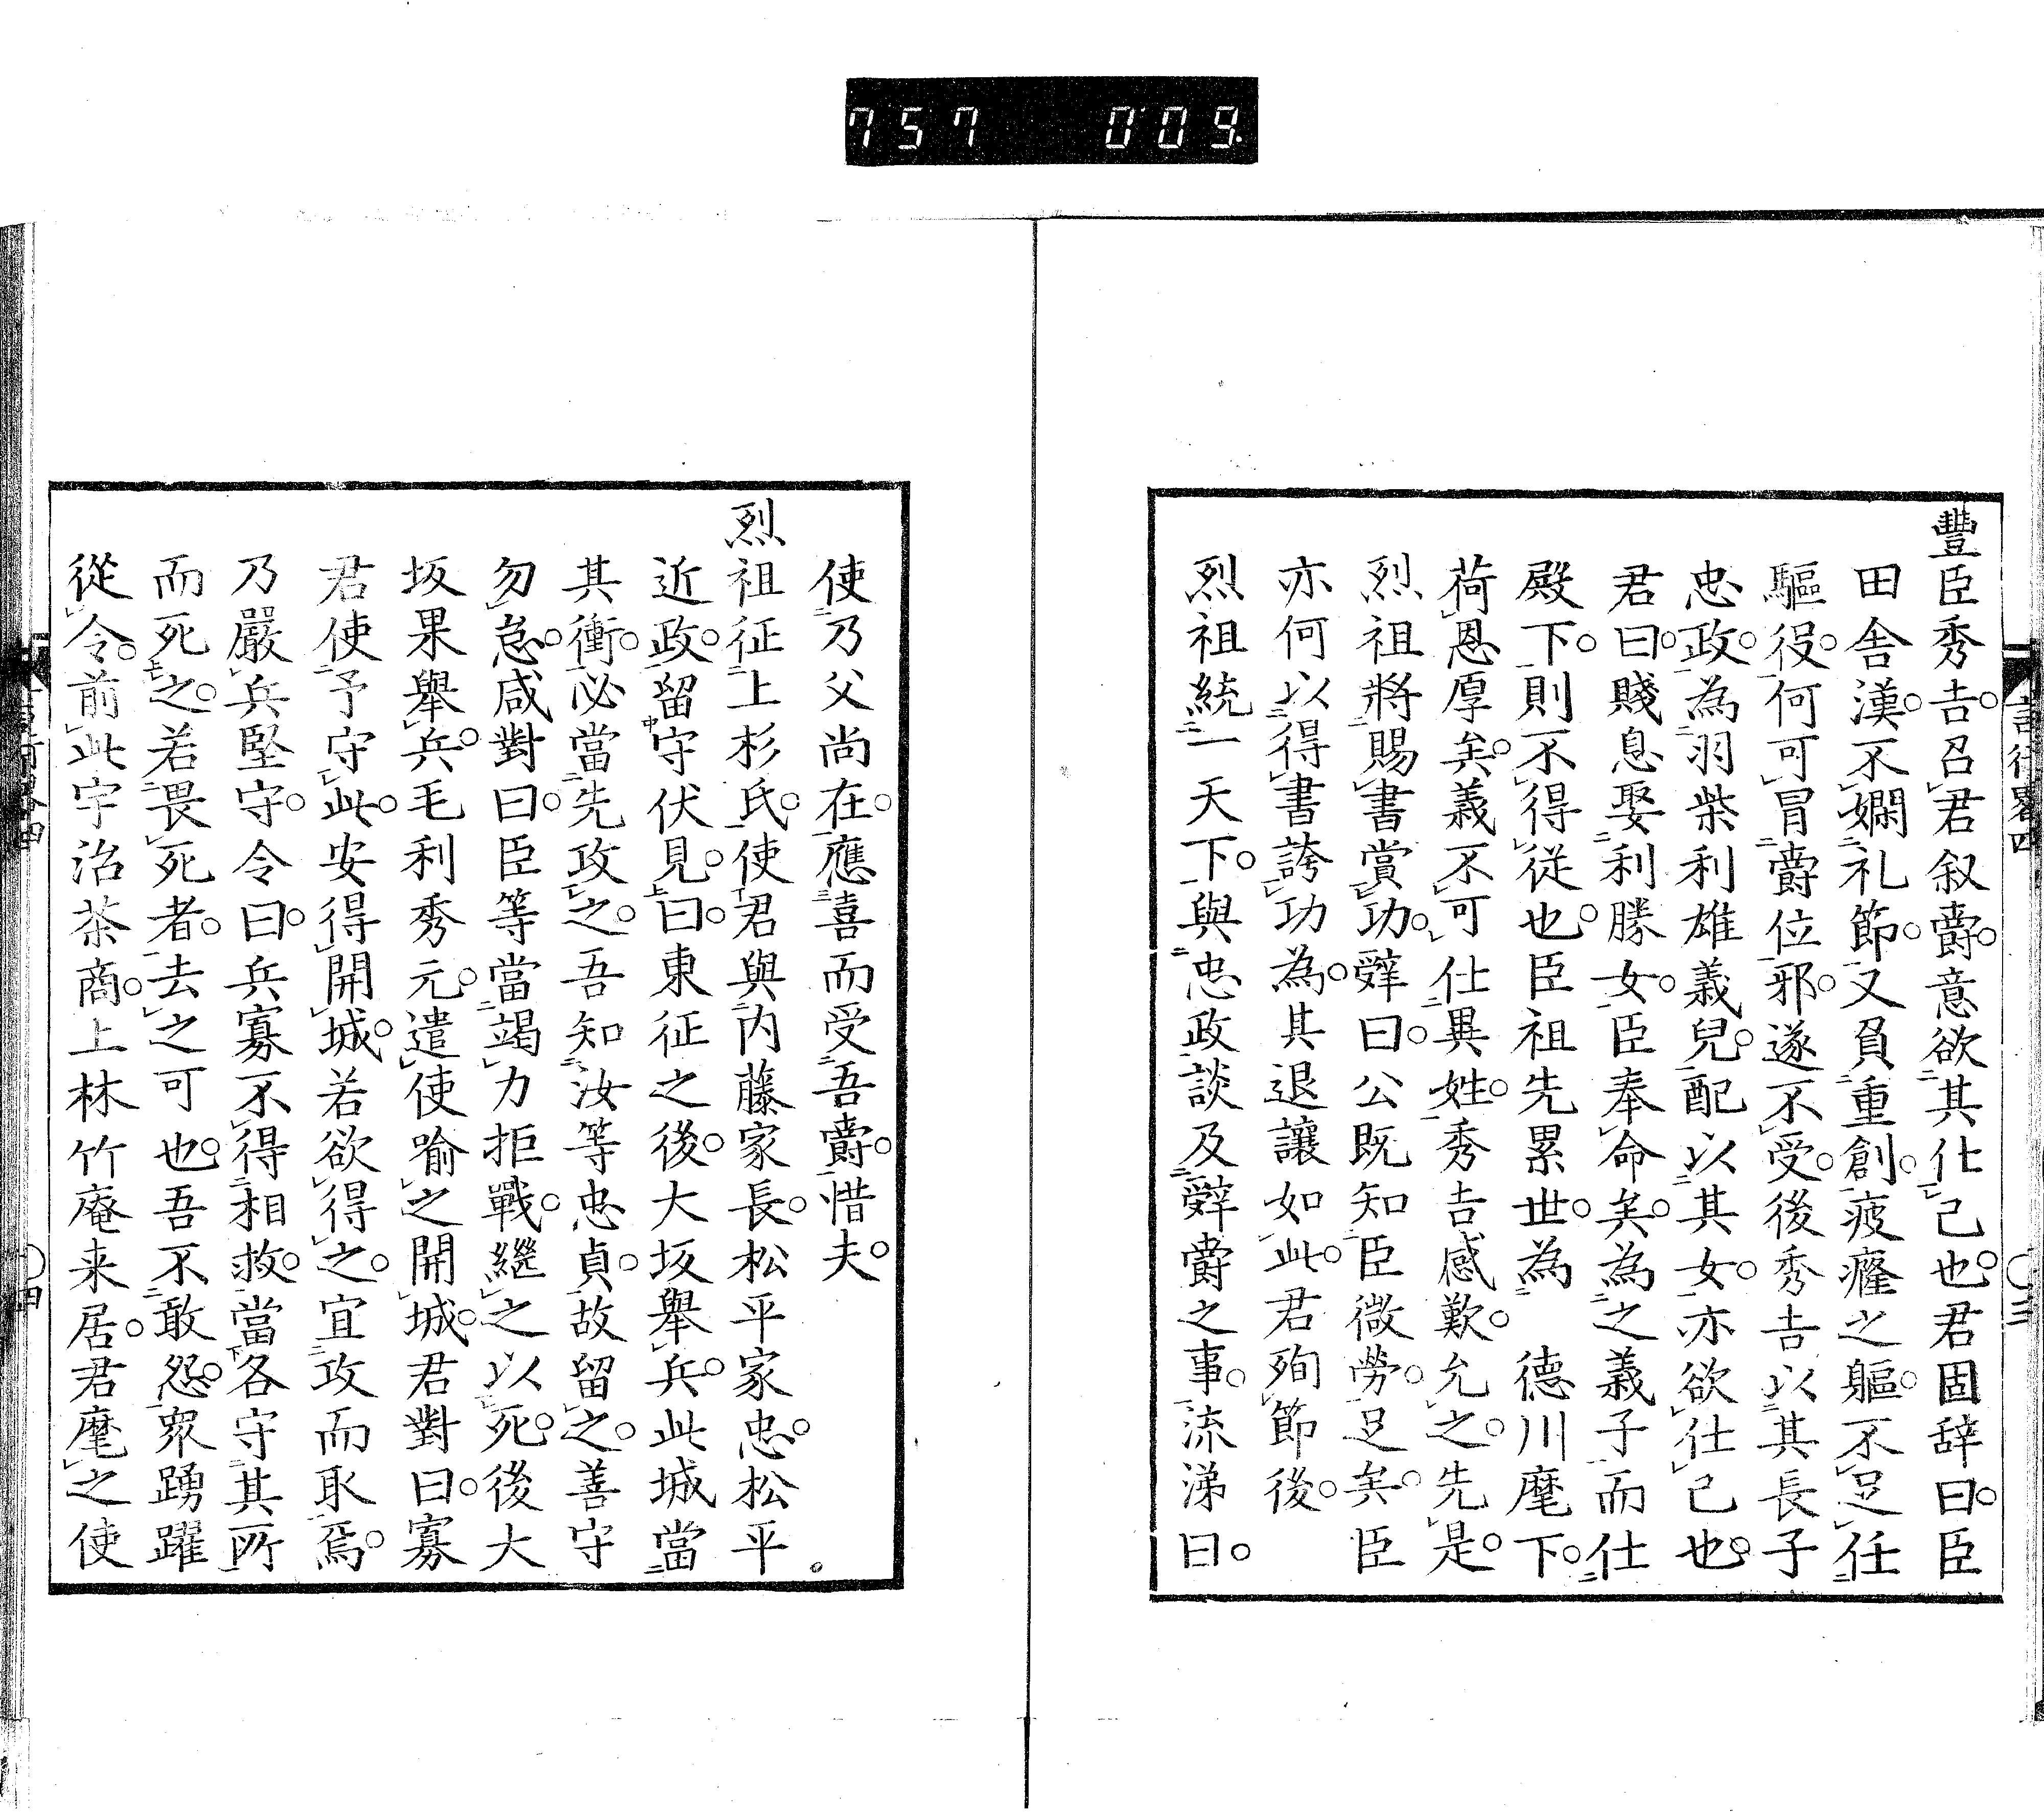 757 009.
豐臣秀吉。召君叙爵。意欲其仕己也。君固辞曰。臣
田舎漢。不嫻礼節。又負重創。疲癃之軀。不足任
驅役。何可冐爵位邪。遂不受。後秀吉以其長子
忠政。為羽柴利雄義兒。配以其女。亦欲仕己也。
君曰。賤息娶利勝女。臣奉命矣。為之義子而仕
殿下。則不得従也。臣祖先累世。為 德川麾下。
荷恩厚矣。義不可仕異姓。秀吉感歎。允之。先是。
烈祖將賜書賞功。辭曰。公既知臣微勞。足矣。臣
亦何以得書誇功為。其退讓如此。君殉節後。
烈祖統一天下。與忠政談及辭爵之事。流涕曰。
使乃父尚在。應喜而受吾爵。惜夫。
烈祖征上杉氏。使君與内藤家長。松平家忠。松平
近政。留守伏見。曰。東征之後。大坂舉兵。此城當
其衝。必當先攻之。吾知汝等忠貞。故留之。善守
勿怠。咸對曰。臣等當竭力拒戰。繼之以死。後大
坂果舉兵。毛利秀元。遣使喻之開城。君對曰。寡
君使予守此。安得開城。若欲得之。宜攻而取焉。
乃嚴兵堅守。令曰。兵寡不得相救。當各守其所
而死之。若畏死者。去之可也。吾不敢怨。眾踴躍
從令。前此宇治茶商。上林竹庵来居。君麾之使
言行畧四 〇三
〇四